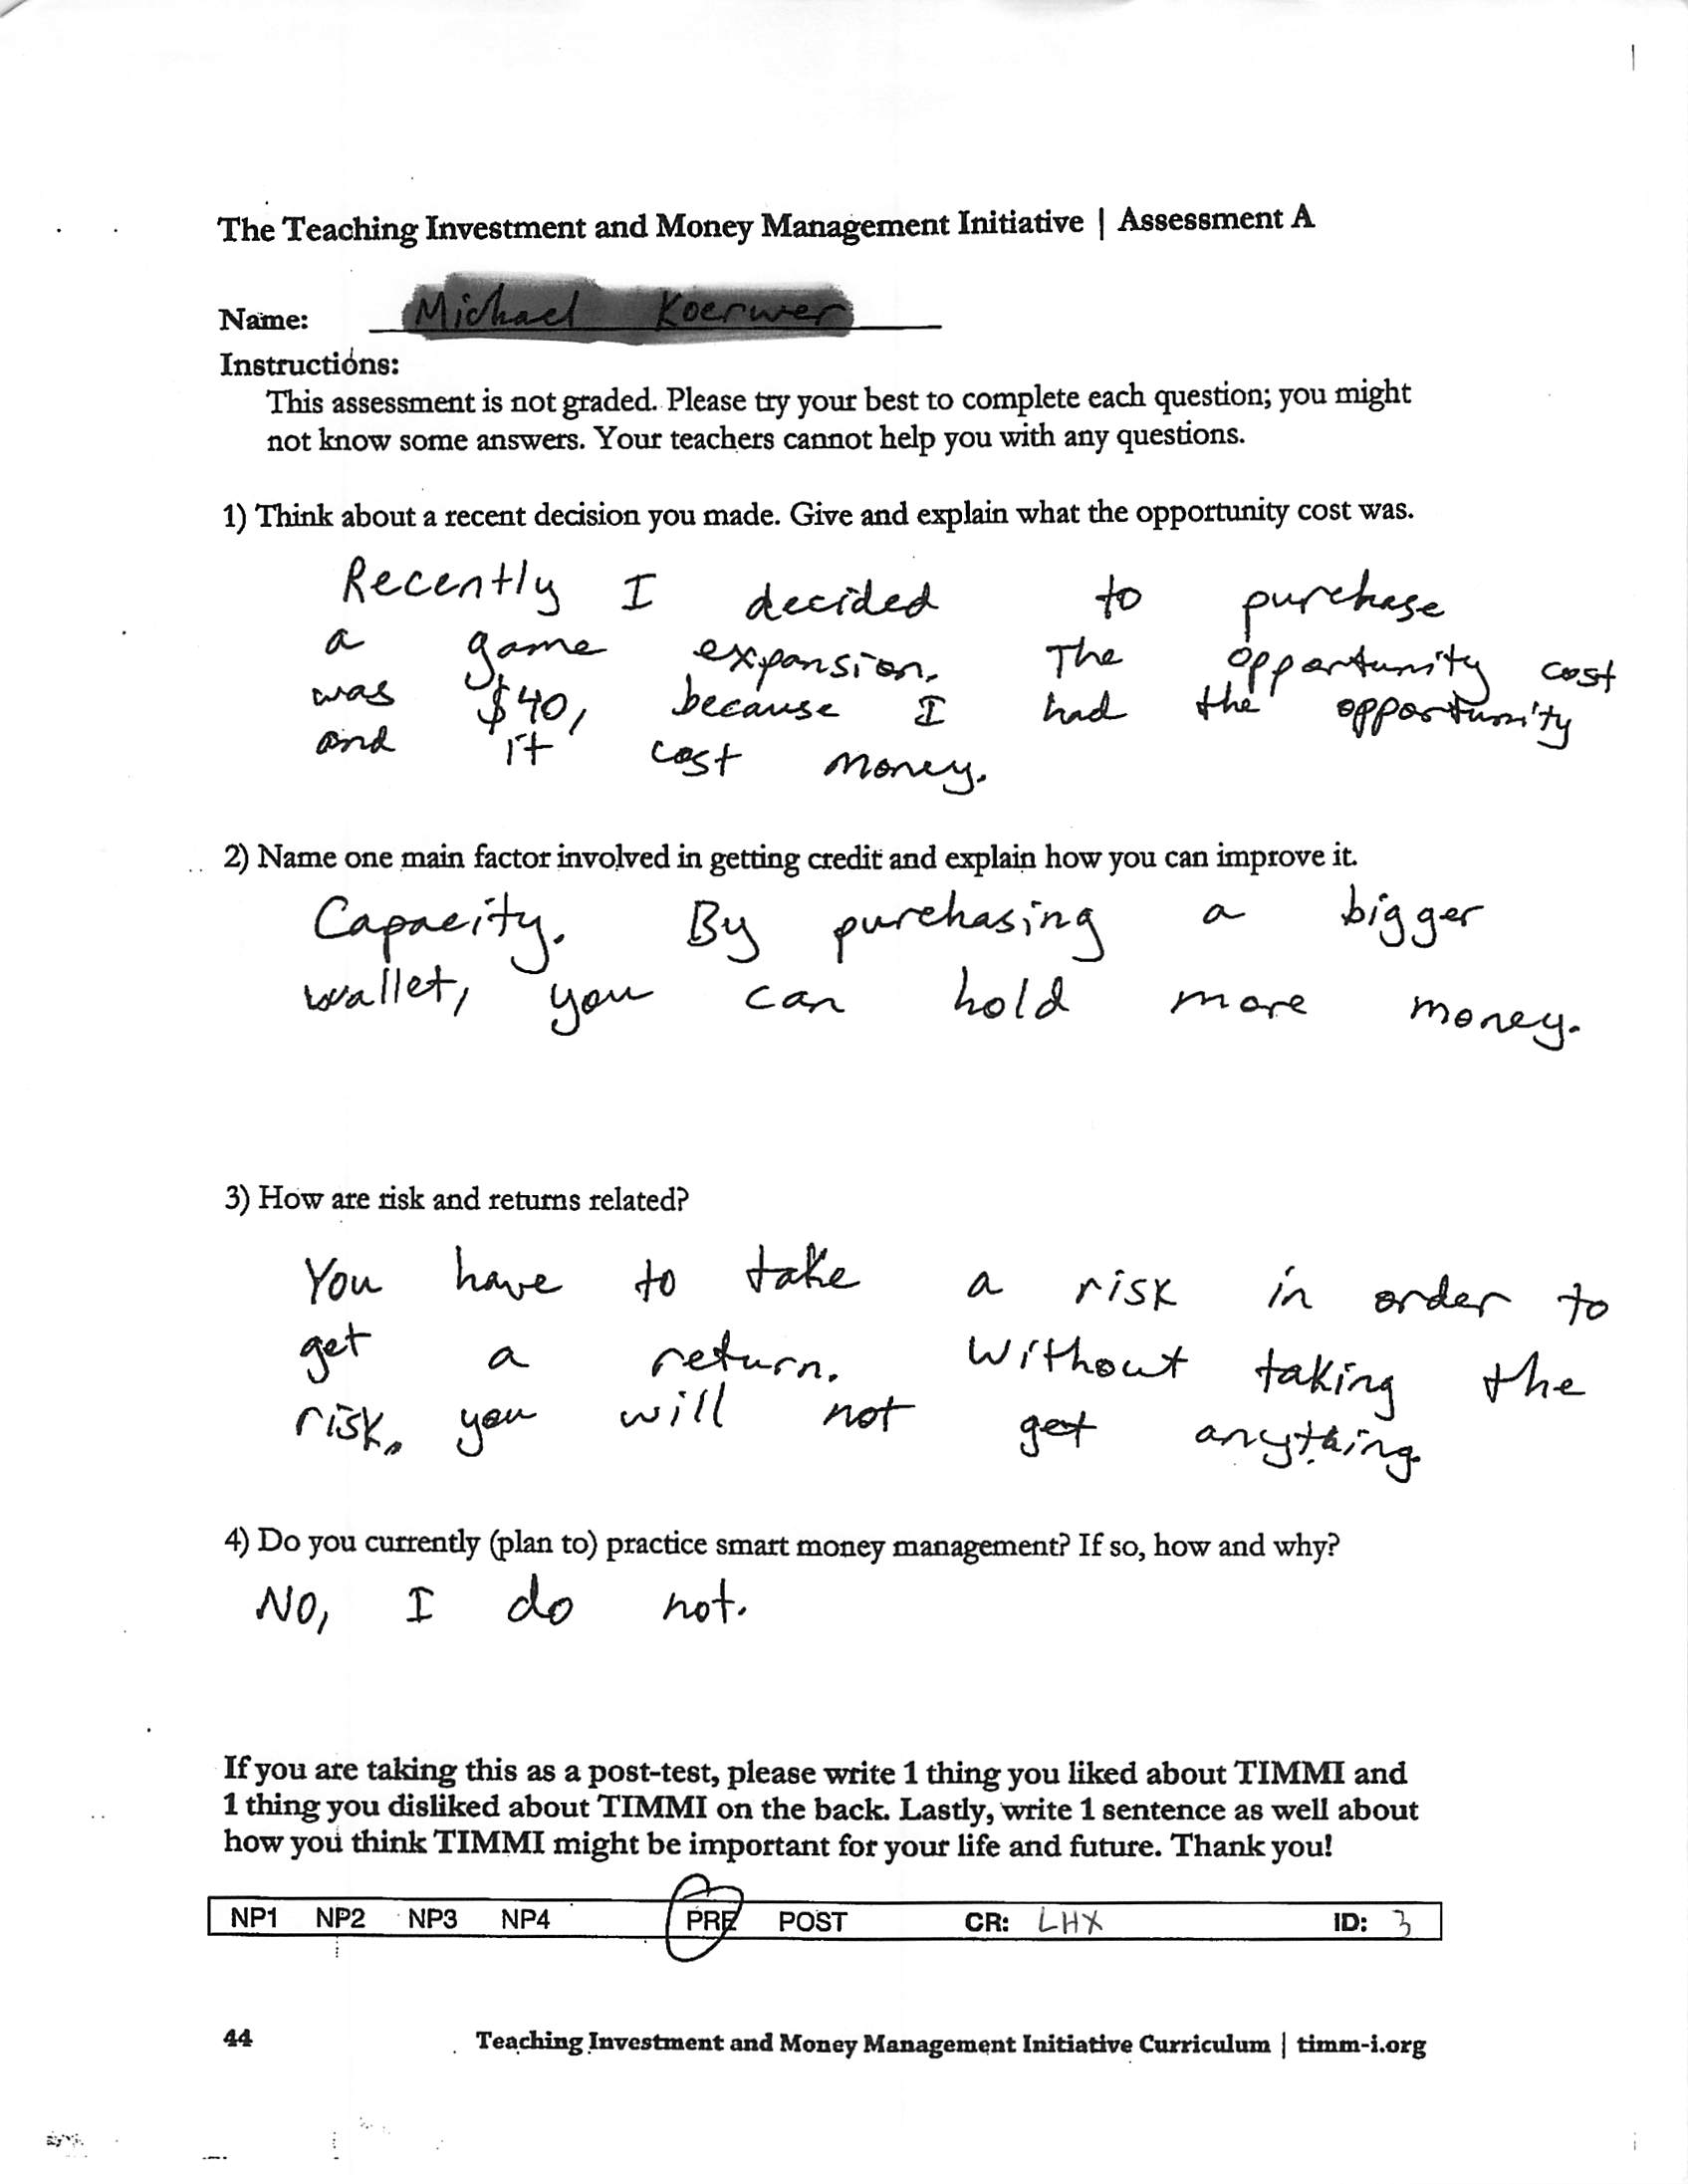 The Teaching Investment and Money Management Initiative | Assessment A
Name:
Instructions:
This assessment is not graded. Please try your best to complete each question; you might
not know some answers. Your teachers cannot help you with any questions.
1) Think about a recent decision you made. Give and explain what the opportunity cost was.
Recently I decided to purchase
a game expansion. The opportunity cost
was $40, because I had the opportunity
and it cost money.
2) Name one main factor involved in getting credit and explain how you can improve it.
Capacity. By purchasing a bigger
wallet, you can hold more money.
3) How are risk and returns related?
You have to take a risk in order to
get a return. Without taking the
risk, you will not get anything.
4) Do you currently (plan to) practice smart money management? If so, how and why?
No, I do not.
If you are taking this as a post-test, please write 1 thing you liked about TIMMI and
1 thing you disliked about TIMMI on the back. Lastly, write 1 sentence as well about
how you think TIMMI might be important for your life and future. Thank you!
NP1 NP2 NP3 NP4 PRE POST CR: LHX ID: 3
44 Teaching Investment and Money Management Initiative Curriculum | timm-i.org